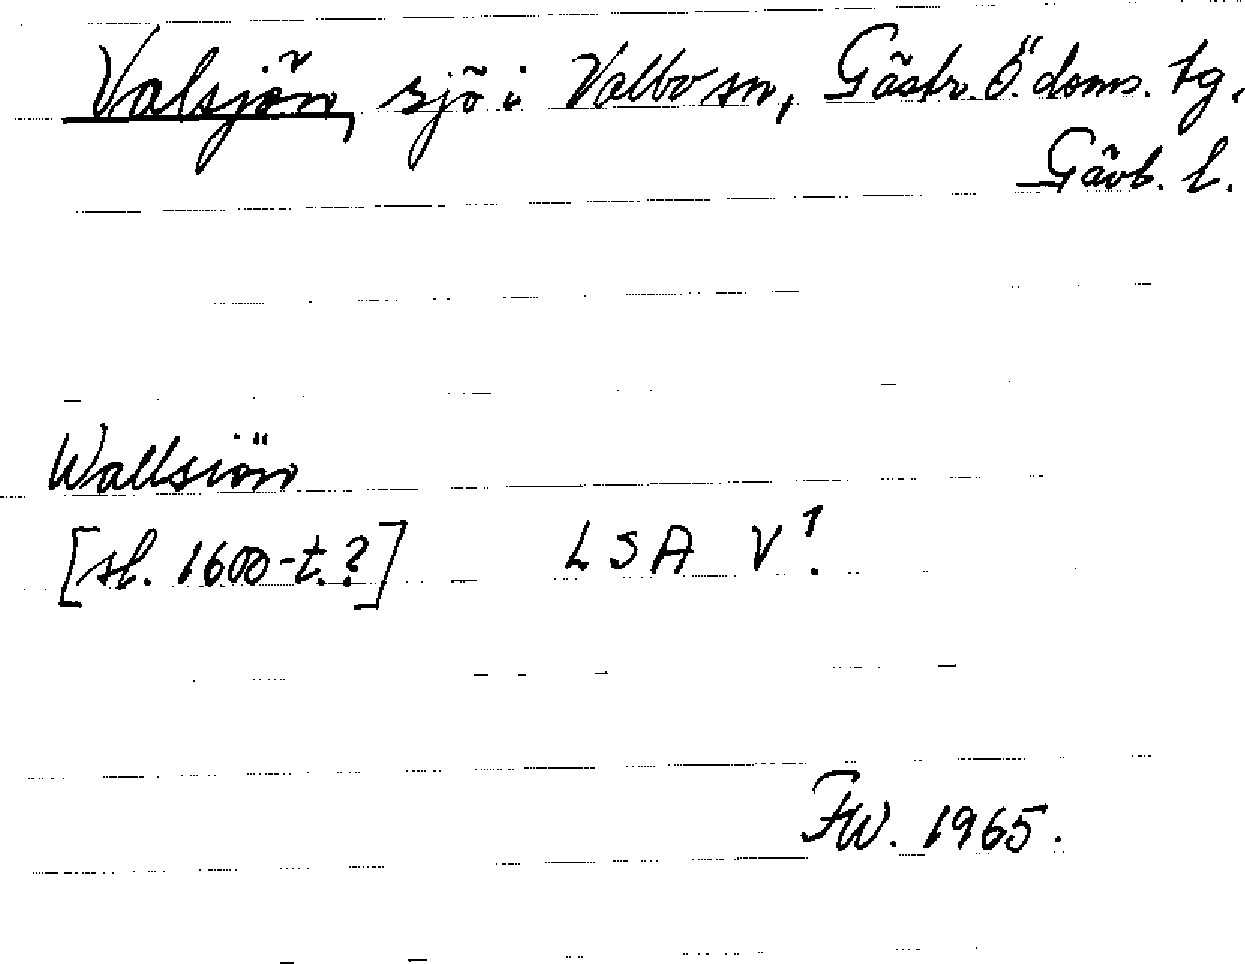 Valsjön, sjö i Valbo sn, Gästr. Ö. doms. tg.
Gävb. l.
Wallsiön
[sl. 1600-t.?] LSA V¹.
FW. 1965.